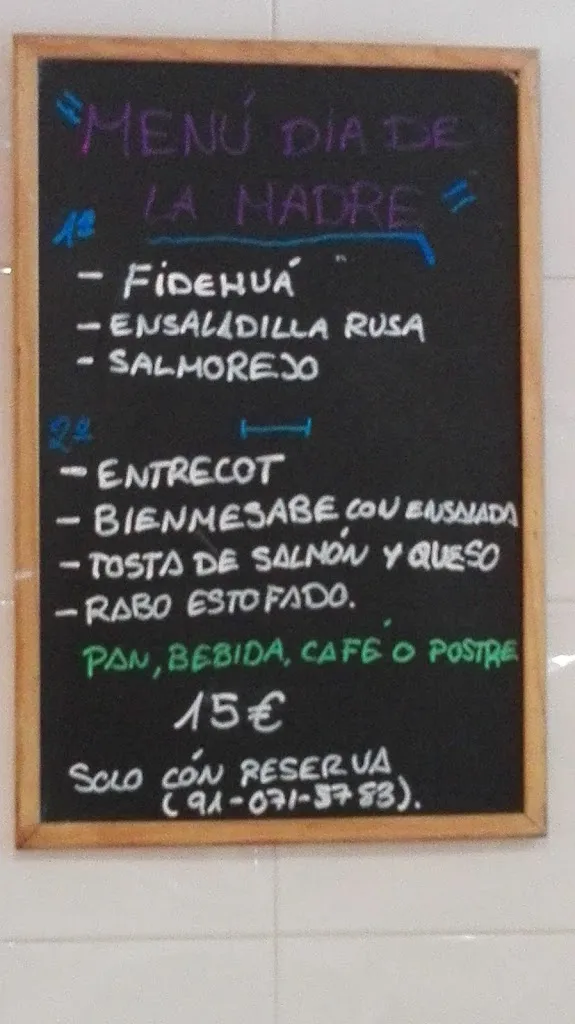 "MENÚ DÍA DE
LA MADRE"
1º
- FIDEHUÁ
- ENSALADILLA RUSA
- SALMOREJO
2º
- ENTRECOT
- BIENMESABE CON ENSALADA
- TOSTA DE SALMÓN Y QUESO
- RABO ESTOFADO.
PAN, BEBIDA, CAFÉ Ó POSTRE
15€
SOLO CÓN RESERVA
(91-071-3783).